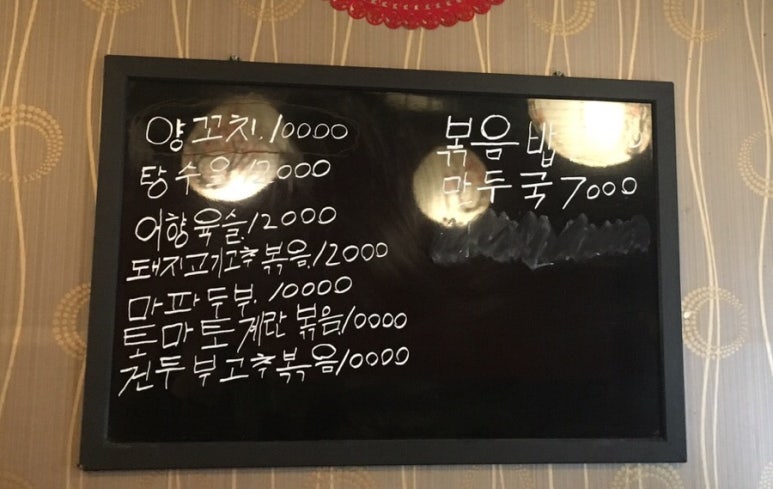 양꼬치. 10000
탕수육 12000
어향육슬. 12000
돼지고기고추볶음. 12000
마파두부. 10000
토마토계란볶음 10000
건두부고추볶음 10000
볶음밥
만두국 7000